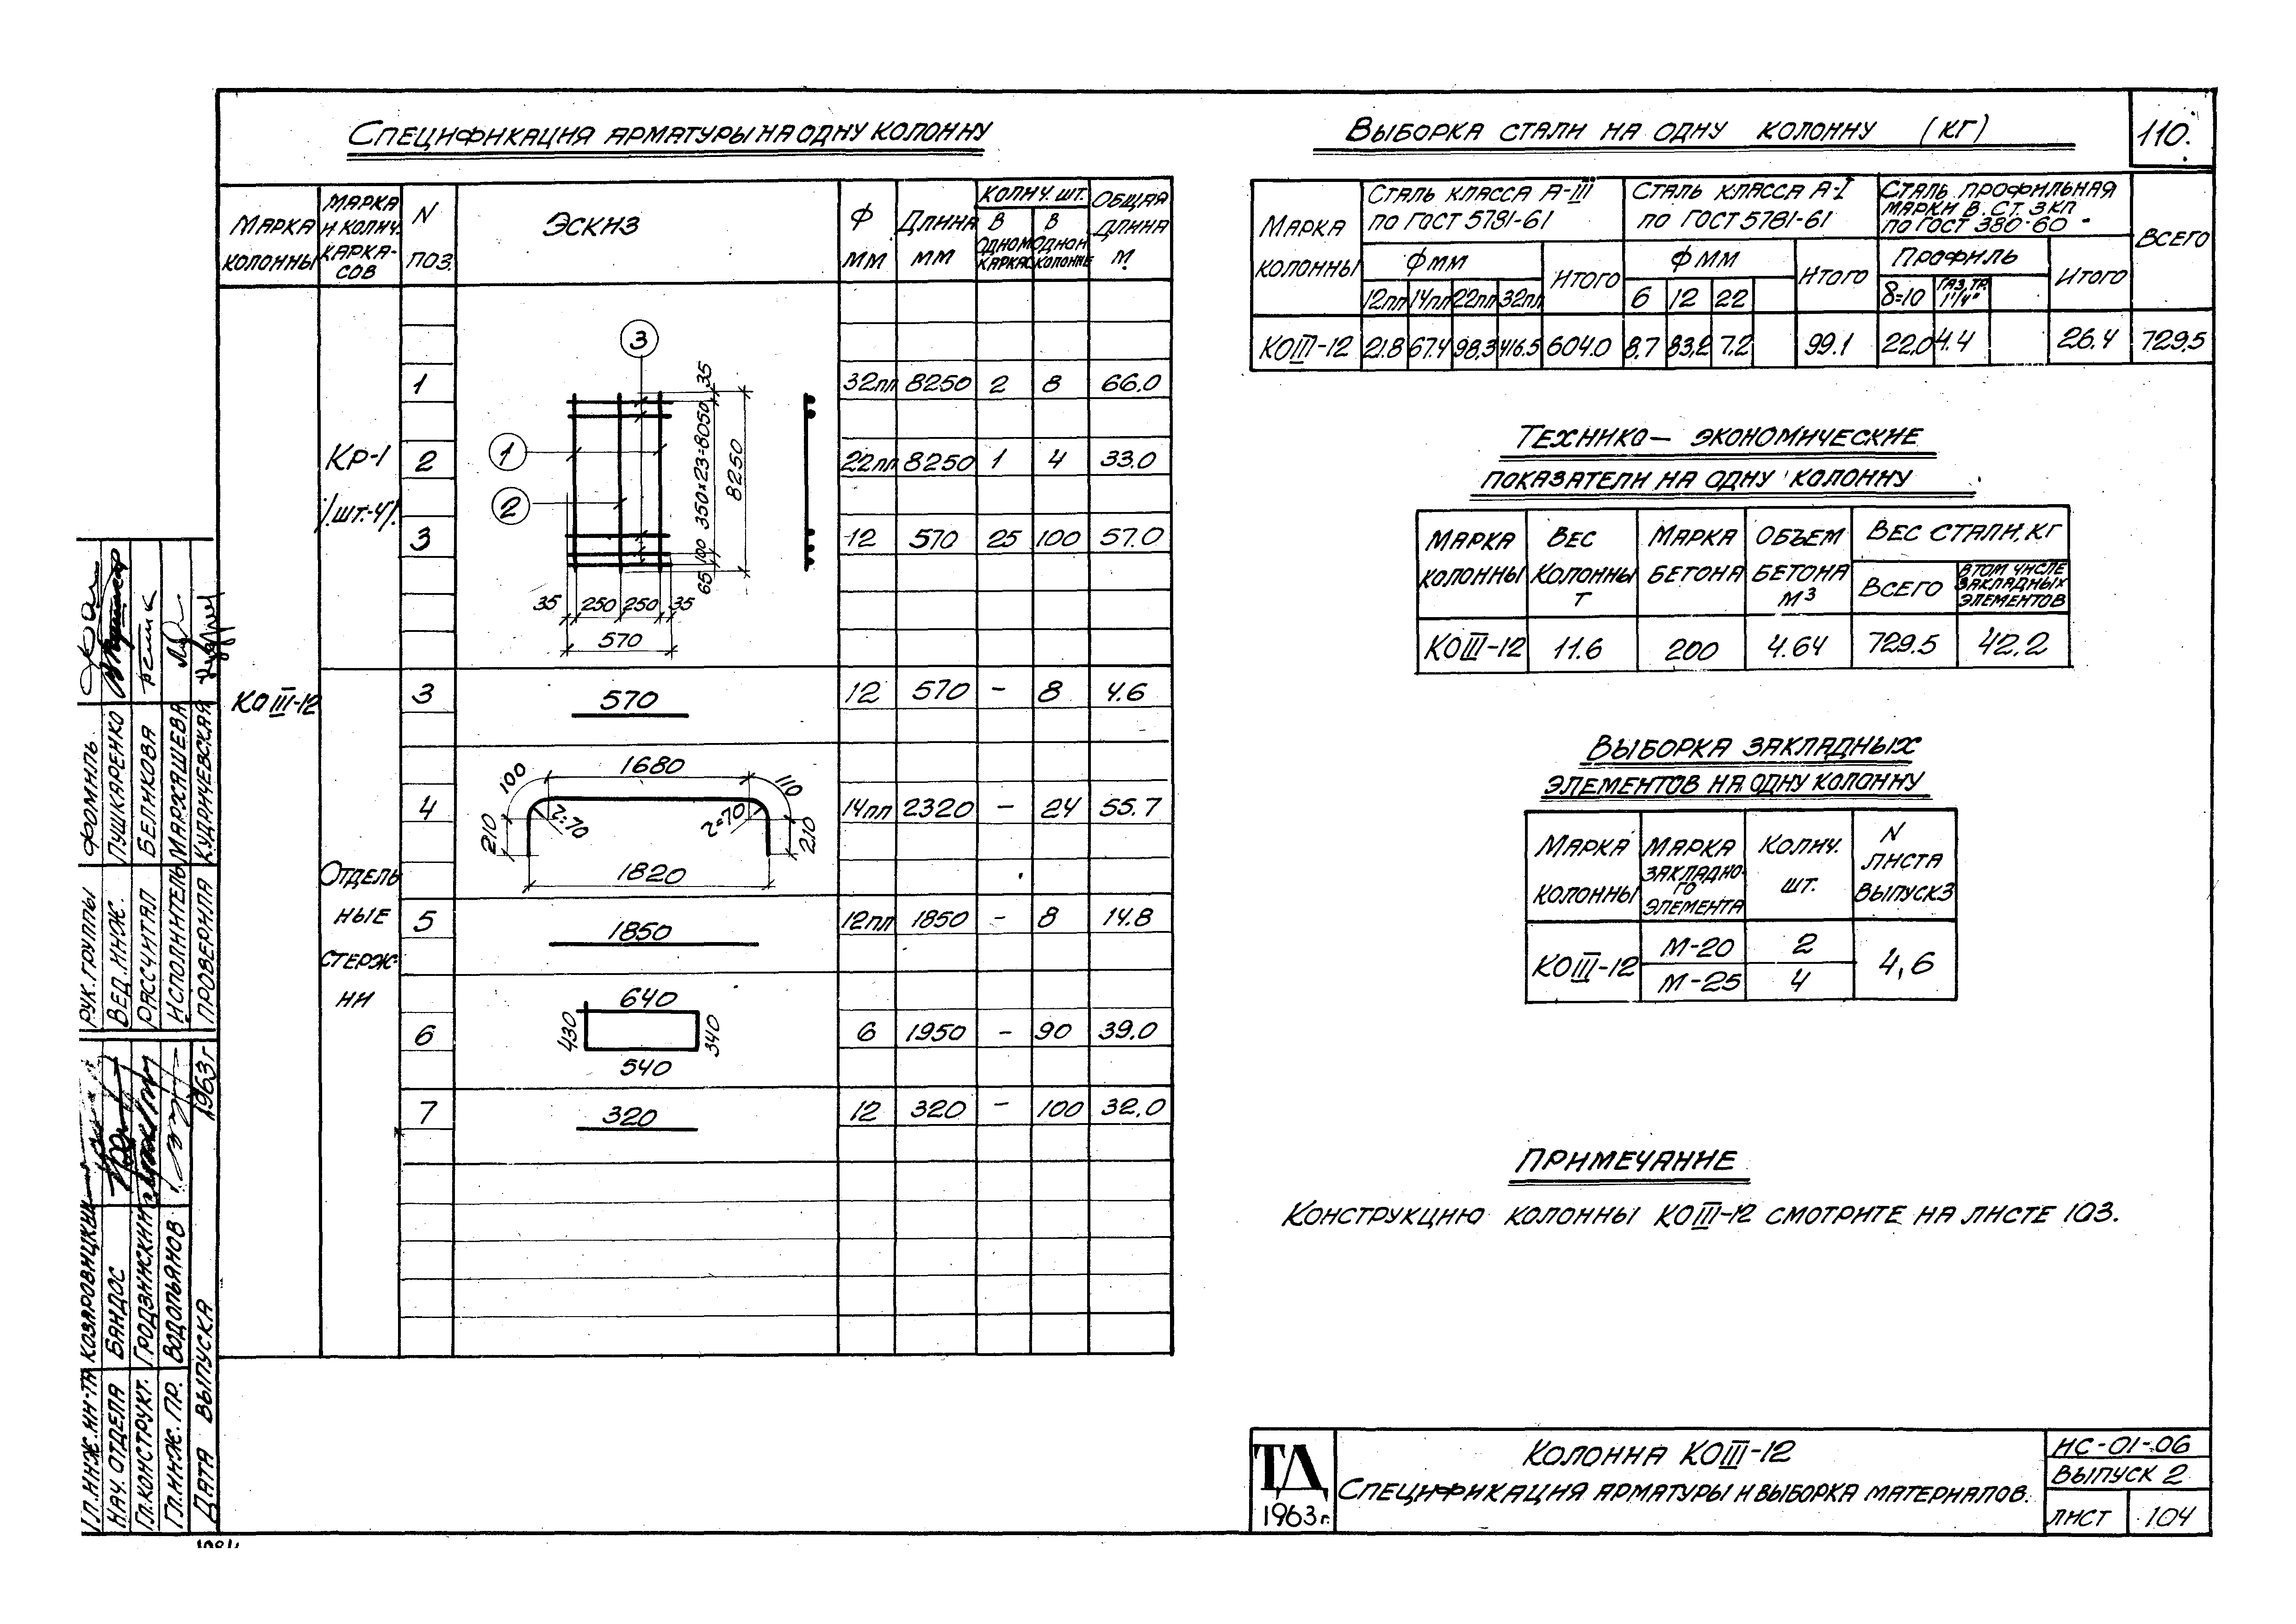 110.
Спецификация арматуры на одну колонну
Марка колонны
Марка и колич. каркасов
N поз.
Эскиз
Ф мм
Длина мм
Колич. шт.
В одном каркасе
В одной колонне
Общая длина м
КОIII-12
Кр-1
/шт.-4/
1 32пл 8250 2 8 66.0
2 22пл 8250 1 4 33.0
3 12 570 25 100 57.0
3
1
2
35
350×23=8050
8250
100
65
35 250 250 35
570
Отдельные стержни
3 570 12 570 - 8 4.6
4 14пл 2320 - 24 55.7
1680
100
110
210
r=70
r=70
210
1820
5 1850 12пл 1850 - 8 14.8
6 6 1950 - 90 39.0
640
430
340
540
7 320 12 320 - 100 32.0
Выборка стали на одну колонну (кг)
Марка колонны
Сталь класса А-III
по ГОСТ 5781-61
Сталь класса А-I
по ГОСТ 5781-61
Сталь профильная
марки В. Ст. 3 кп
по ГОСТ 380-60
Всего
Ф мм
Итого
Ф мм
Итого
Профиль
Итого
12пл 14пл 22пл 32пл
6 12 22
δ=10
Газ. тр. 1¼"
КОIII-12 21.8 67.4 98.3 416.5 604.0 8.7 83,2 7.2 99.1 22,0 4.4 26.4 729,5
Технико-экономические
показатели на одну колонну
Марка колонны
Вес колонны т
Марка бетона
Объем бетона м³
Вес стали, кг
Всего
В том числе закладных элементов
КОIII-12 11.6 200 4.64 729.5 42.2
Выборка закладных
элементов на одну колонну
Марка колонны
Марка закладного элемента
Колич. шт.
N листа выпуск 3
КОIII-12
М-20 2
М-25 4
4,6
Примечание
Конструкцию колонны КОIII-12 смотрите на листе 103.
ТД
1963г.
Колонна КОIII-12
Спецификация арматуры и выборка материалов.
ИС-01-06
Выпуск 2
Лист 104
Рук. группы Фомиль
Вед. инж. Пушкаренко
Рассчитал Беликова
Исполнитель Маргашева
Проверила Кудричевская
Гл. инж. ин-та Козаровицкий
Нач. отдела Бандос
Гл. конструкт. Гродзинский
Гл. инж. пр. Водопьянов
Дата выпуска 1963г